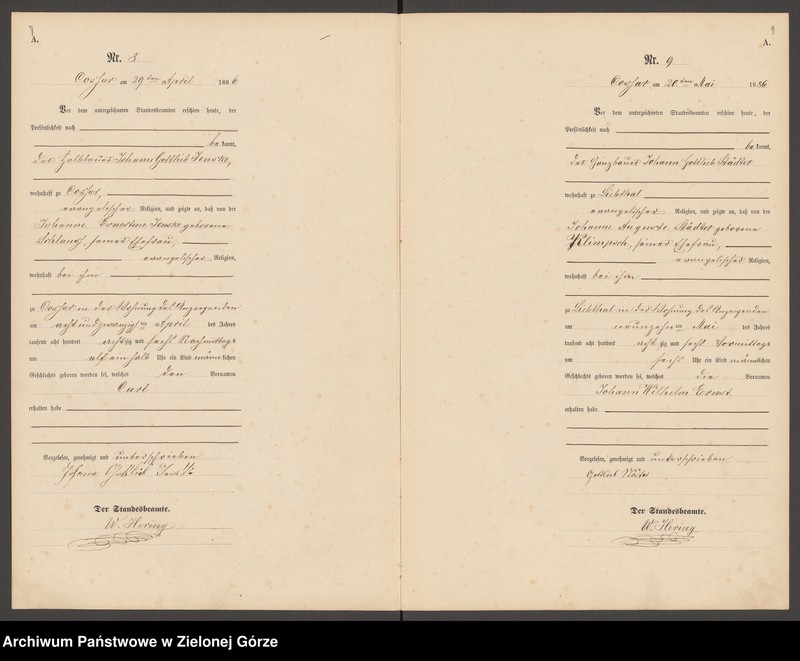 8
A.
Nr. 8.
Cossar am 29ten April 1886
Vor dem unterzeichneten Standesbeamten erschien heute, der
Persönlichkeit nach
bekannt,
der Halbbauer Johann Gottlieb Jenske,
wohnhaft zu Cossar,
evangelischer Religion, und zeigte an, daß von der
Johanne Ernestine Jenske geborene
Schlang, seiner Ehefrau,
evangelischer Religion,
wohnhaft bei ihm
zu Cossar in der Wohnung des Anzeigenden
am achtundzwanzigsten April des Jahres
tausend acht hundert achtzig und sechs Nachmittags
um elfeinhalb Uhr ein Kind männlichen
Geschlechts geboren worden sei, welches den Vornamen
Carl
erhalten habe
Vorgelesen, genehmigt und unterschrieben
Johann Gottlieb Jenske
Der Standesbeamte.
W. Hering
9
A.
Nr. 9.
Cossar am 20ten Mai 1886
Vor dem unterzeichneten Standesbeamten erschien heute, der
Persönlichkeit nach
bekannt,
der Ganzbauer Johann Gottlieb Städter
wohnhaft zu Liebthal
evangelischer Religion, und zeigte an, daß von der
Johann Auguste Städter geborene
Klimpsch, seiner Ehefrau,
evangelischer Religion,
wohnhaft bei ihm
zu Liebthal in der Wohnung des Anzeigenden
am neunzehnten Mai des Jahres
tausend acht hundert achtzig und sechs Vormittags
um sechs Uhr ein Kind männlichen
Geschlechts geboren worden sei, welches die Vornamen
Johann Wilhelm Ernst
erhalten habe
Vorgelesen, genehmigt und unterschrieben
Gottlieb Städter
Der Standesbeamte.
W. Hering
Archiwum Państwowe w Zielonej Górze